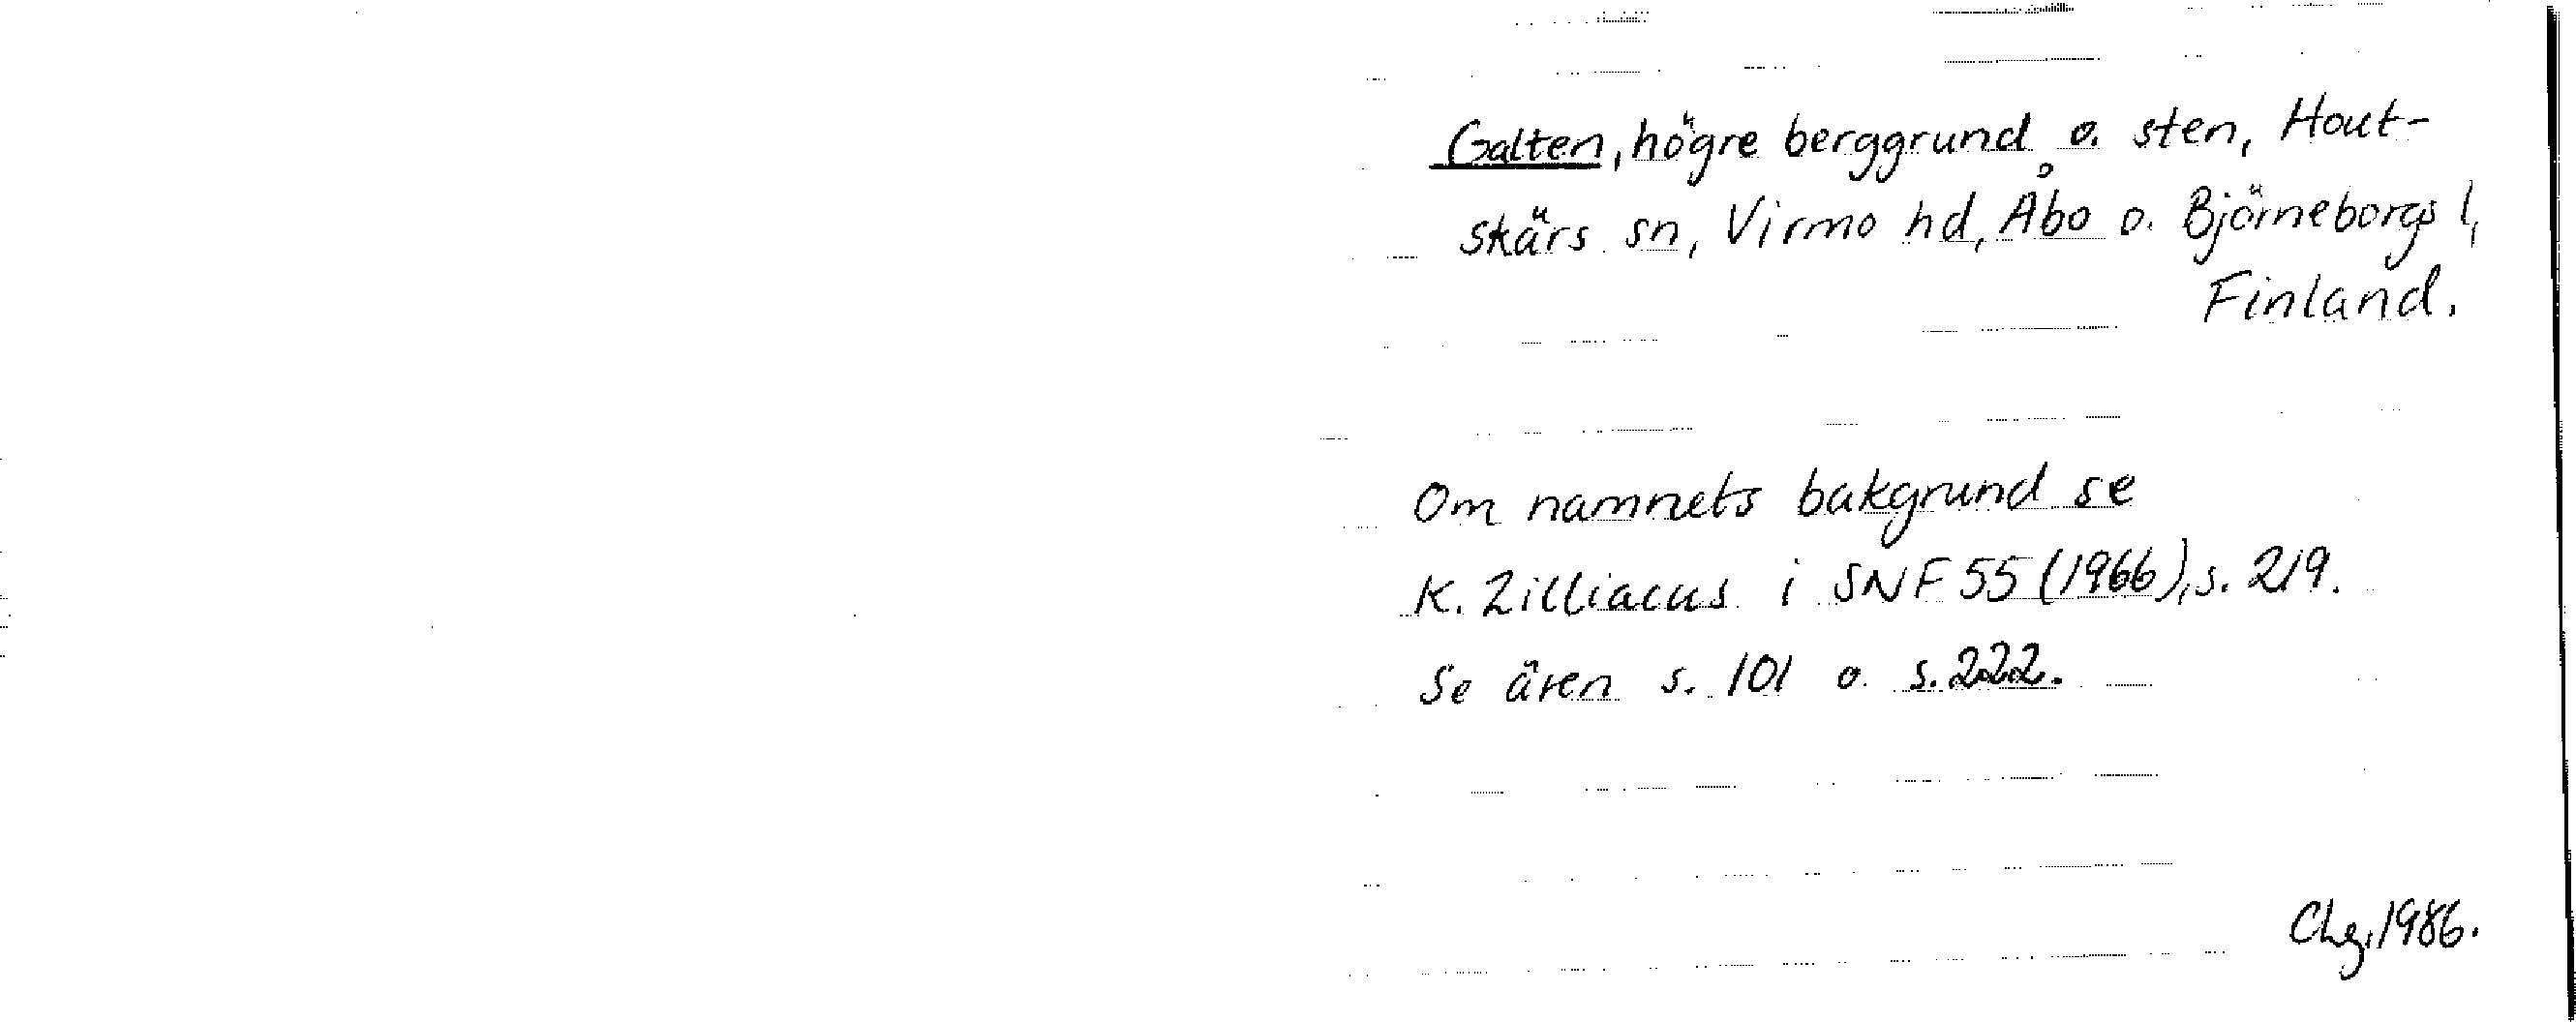 Galten, högre berggrund o. sten, Hout-
skärs sn, Virmo hd, Åbo o. Björneborgs l,
Finland.
Om namnets bakgrund se
K. Zilliacus i SNF 55 (1966), s. 219.
Se även s. 101 o s. 222.
Chg, 1986.